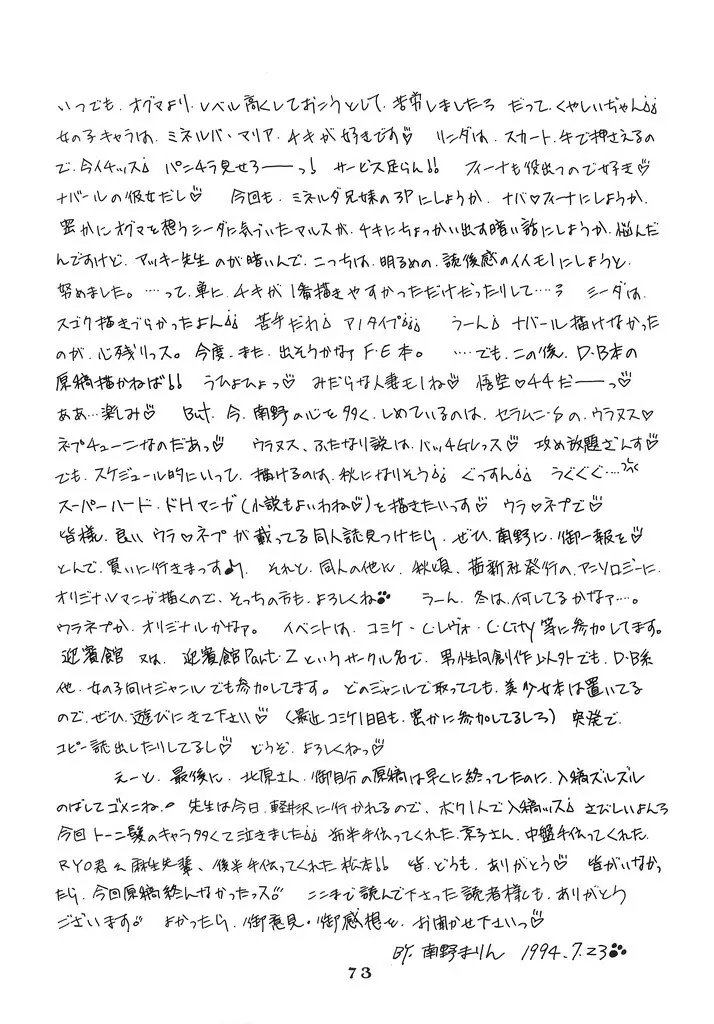 いつでも、オグマより、レベル高くしておこうとして、苦労しましたろ だって、くやしいぢゃん♩♩
女の子キャラは、ミネルバ・マリア、チキが好きです♡ リンダは、スカート、手で押さえるの
で、今イチッス♩ パンチラ見せろ――っ! サービス足らん!! フィーナも役立つので好き♡
ナバールの彼女だし♡ 今回も、ミネルダ兄妹の3Pにしようか、ナバ♡フィーナにしようか、
密かにオグマを想うシーダに気づいたマルスが、チキにちょっかい出す暗い話にしようか、悩んだ
んですけど、アッキー先生のが暗いんで、こっちは、明るめの、読後感のイイモノにしようと、
努めました。……って、単に、チキが1番描きやすかっただけだったりして……? シーダは、
スゴク描きづらかったよん♩♩ 苦手だわ♩ アノタイプ♩♩♩ うーん♩ ナバール描けなかった
のが、心残りっス。今度、また、出そうかなF・E本。 ……でも、この後、D・B本の
原稿描かねば!! うひょひょっ♡ みだらな人妻モノね♡ 悟空♡44だーっ♡
ああ…楽しみ♡ But、今、南野の心を多く、しめているのは、セラムン・Sの、ウラヌス♡
ネプチューンなのだあっ♡ ウラヌス、ふたなり説は、バッチGレっス♡ 攻め放題ざんす♡
でも、スケジュール的にいって、描けるのは、秋になりそう♩♩ ぐっすん♩♩ うぐぐぐ……
スーパーハード・ドHマンガ(小説もよいわね♡)を描きたいっす♡ ウラ♡ネプで♡
皆様、良い ウラ♡ネプが載ってる同人誌見つけたら、ぜひ、南野に、御一報を♡
とんで、買いに行きまっす♪ それと、同人の他に、秋頃、茜新社発行の、アンソロジーに、
オリジナルマンガ描くので、そっちの方も、よろしくね うーん、冬は、何してるかなァ……。
ウラネプか、オリジナルかなァ。 イベントは、コミケ・C・レヴォ・C・City等に参加してます。
迎賓館 又は、迎賓館Part・2というサークル名で、男性向創作以外でも、D・B系
他、女の子向けジャンルでも参加してます。どのジャンルで取ってても、美少女本は置いてる
ので、ぜひ、遊びにきて下さい♡ (最近コミケ1日目も、密かに参加してるしろ) 突発で、
コピー誌出したりしてるし♡ どうぞ、よろしくねっ♡
えーと、最後に、北原さん、御自分の原稿は早くに終ってたのに、入稿ズルズル
のばしてゴメンね。 先生は今日、軽井沢に行かれるので、ボク1人で入稿ッス♩ さびしいよんろ
今回トーン髪のキャラ多くて泣きました♩♩ 前半手伝ってくれた、京子さん、中盤手伝ってくれた、
RYO君&麻生先輩、後半手伝ってくれた松本!! 皆、どうも、ありがとう♡ 皆がいなかっ
たら、今回原稿終んなかったっス!! ここまで読んで下さった読者様にも、ありがとう
ございます!! よかったら、御意見・御感想を、お聞かせ下さいっ♡
BY. 南野まりん 1994.7.23
73